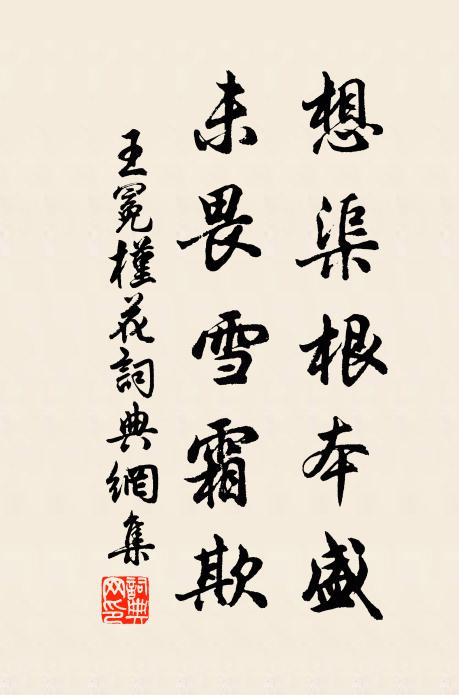 想渠根本盛
未畏雪霜欺
王冕槿花詞典網集
詞典網印